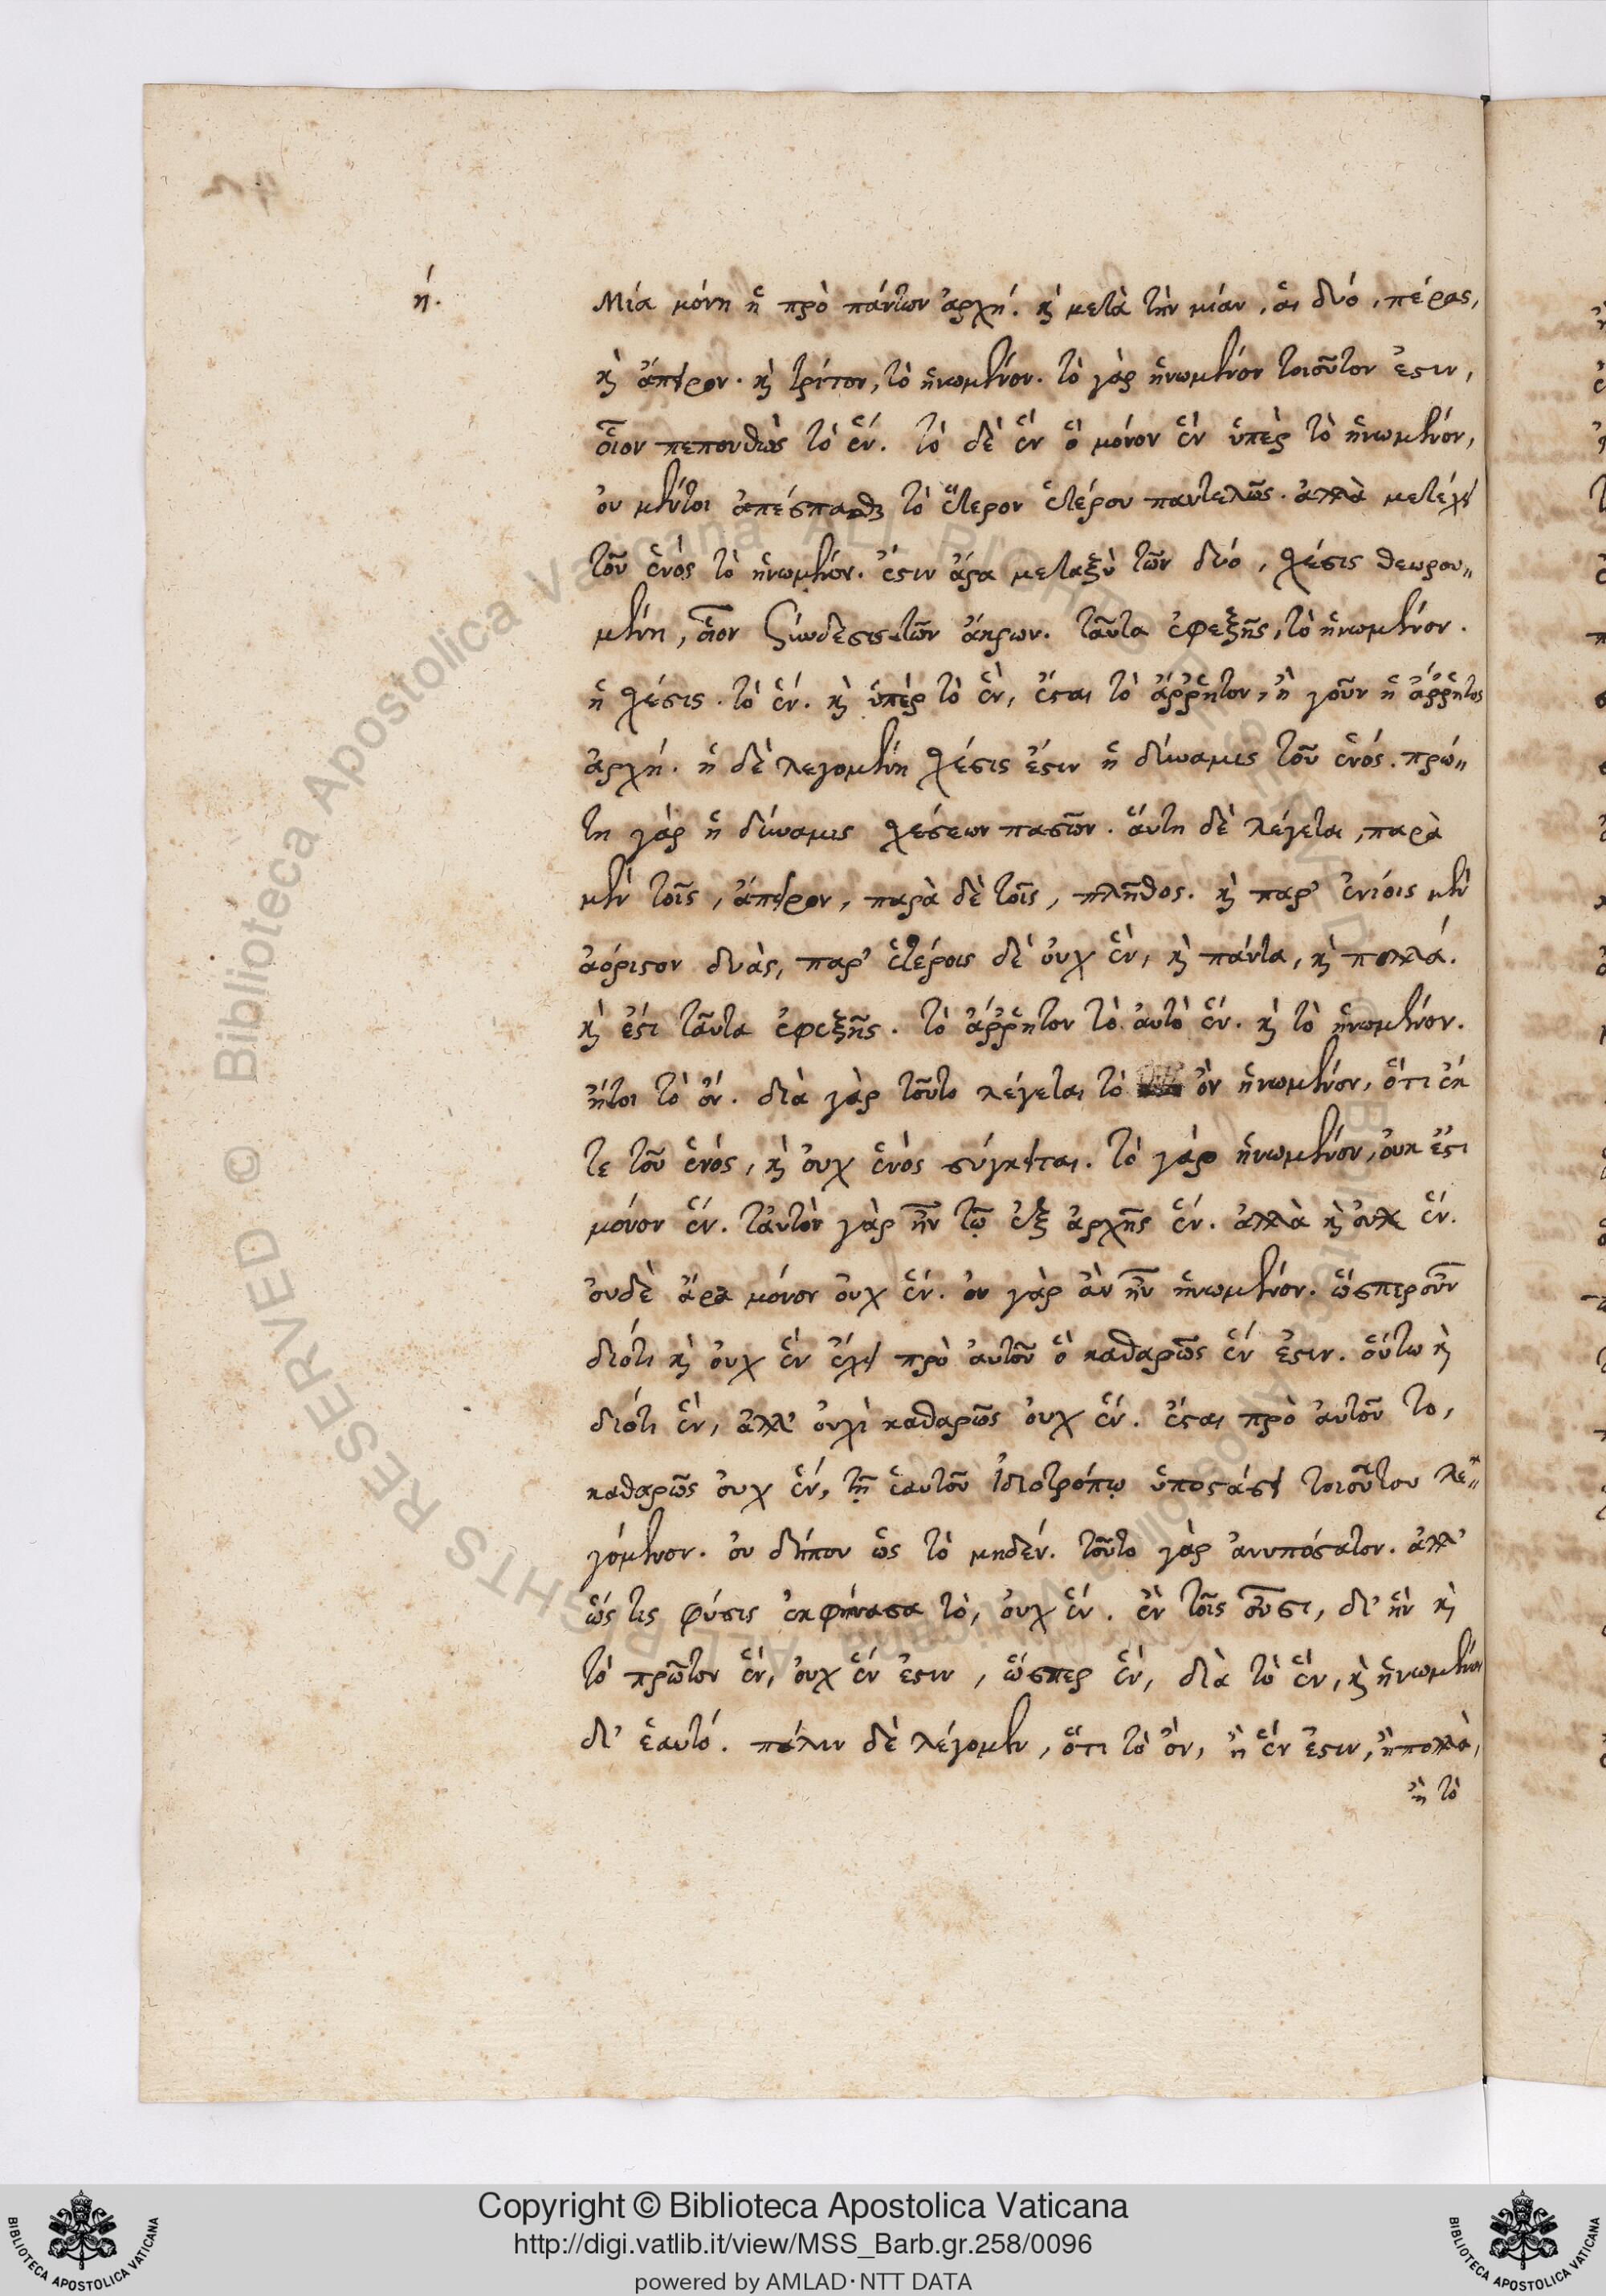 ή.
Μία μόνη ἡ πρὸ πάντων ἀρχή. κὶ μετὰ τὴν μίαν, ἁι δυό, πέρας,
κὶ ἄπειρον. κὶ τρίτον, τὸ ἡνωμένον. τὸ γὰρ ἡνωμένον τοιοῦτον ἐστιν,
οἷον πεπονθὼς τὸ ἕν. τὸ δὲ ἓν ὃ μόνον ἓν ὑπὲρ τὸ ἡνωμένον,
ὀυ μέντοι ἀπέσπασθαι τὸ ἕτερον ἑτέρου παντελῶς. ἀλλὰ μετέχει
τοῦ ἑνός τὸ ἡνωμένον. ἔστιν ἄρα μεταξὺ τῶν δυό, σχέσις θεωρου„
μένη, οἷον ξύνδεσις τῶν ἄκρων. ταῦτα ἐφεξῆς, τὸ ἡνωμένον.
ἡ σχέσις. τὸ ἕν. κὶ ὑπὲρ τὸ ἓν, ἔσται τὸ ἄῤῥητον, ἢ γοῦν ἡ ἄῤῥητος
ἀρχή. ἡ δὲ λεγομένη σχέσις ἔστιν ἡ δύναμις τοῦ ἑνός. πρώ„
τη γὰρ ἡ δύναμις σχέσεων πασῶν. ἅυτη δὲ λέγεται, παρὰ
μὲν τοῖς, ἄπειρον, παρὰ δὲ τοῖς, πλῆθος. κὶ παρ' ἐνίοις μὲν
ἀόριστον δυὰς, παρ' ἑτέροις δὲ ὀυχ ἓν, κὶ πάντα, κὶ πολλά.
κὶ ἔστι ταῦτα ἐφεξῆς. τὸ ἄῤῥητον τὸ ἀυτὸ ἕν. κὶ τὸ ἡνωμένον.
ἤτοι τὸ ὄν. διὰ γὰρ τοῦτο λέγεται τὸ ὂν ἡνωμένον, ὅτι ἐκ
τε τοῦ ἑνός, κὶ ὀυχ ἑνὸς σύγκειται. τὸ γὰρ ἡνωμένον, ὀυκ ἔστι
μόνον ἕν. τἀυτὸν γὰρ ἦν τῷ ἐξ ἀρχῆς ἕν. ἀλλὰ κὶ ὀυχ ἕν.
ὀυδὲ ἄρα μόνον ὀυχ ἕν. ὀυ γὰρ ἂν ἦν ἡνωμένον. ὥσπερ οὖν
διότι κὶ ὀυχ ἓν ἔχει πρὸ ἀυτοῦ ὃ καθαρῶς ἕν ἐστιν. ὅυτω κὶ
διότι ἓν, ἀλλ' ὀυχὶ καθαρῶς ὀυχ ἕν. ἔσται πρὸ ἀυτοῦ το,
καθαρῶς ὀυχ ἕν, τῇ ἑαυτοῦ ἰδιοτρόπῳ ὑποστάσει τοιοῦτον λε„
γόμενον. ὀυ δήπου ὡς τὸ μηδέν. τοῦτο γὰρ ἀνυπόστατον. ἀλλ'
ὥς τις φύσις ἐκφήνασα τὸ, ὀυχ ἕν. ἐν τοῖς οὖσι, δι' ἣν κὶ
τὸ πρῶτον ἓν, ὀυχ ἕν ἐστιν, ὥσπερ ἓν, διὰ τὸ ἓν, κὶ ἡνωμένον
δι' ἑαυτό. πάλιν δὲ λέγομεν, ὅτι τὸ ὂν, ἢ ἕν ἐστιν, ἢ πολλὰ,
ἢ τὸ
Copyright © Biblioteca Apostolica Vaticana
http://digi.vatlib.it/view/MSS_Barb.gr.258/0096
powered by AMLAD·NTT DATA